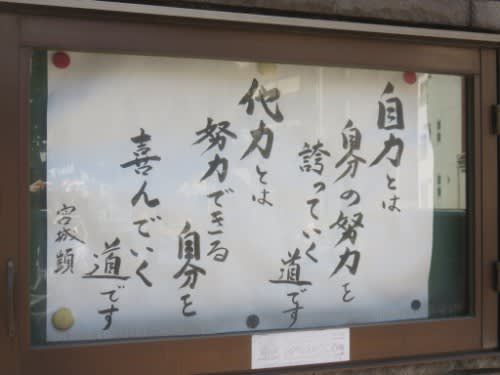 自力とは
自分の努力を
誇っていく
道です
他力とは
努力できる
自分を
喜んでいく
道です
宮城顗